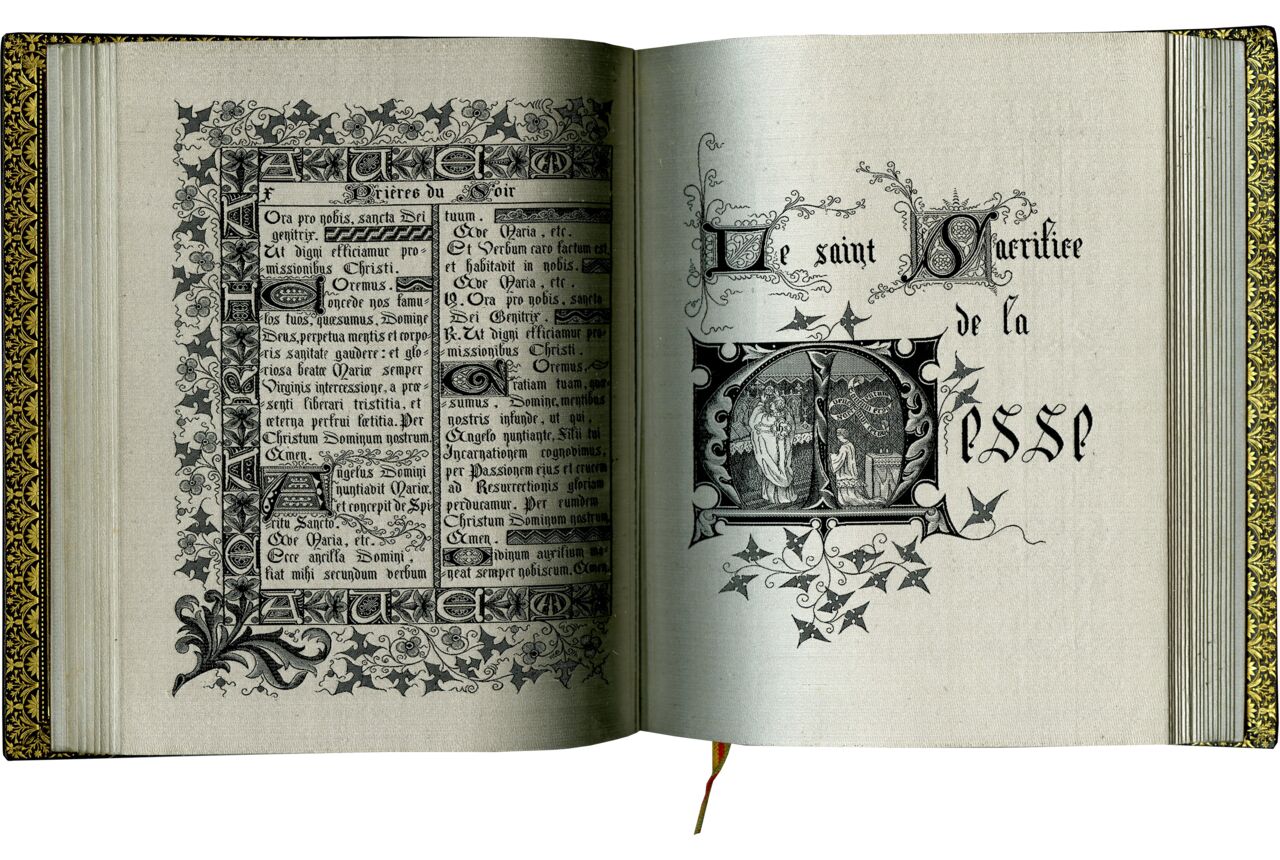 AUE M
Prières du Soir
Ora pro nobis, sancta Dei
genitrix.
Ut digni efficiamur pro-
missionibus Christi.
Oremus.
Concede nos famu-
los tuos, quæsumus, Domine
Deus, perpetua mentis et corpo-
ris sanitate gaudere: et glo-
riosa beatæ Mariæ semper
Virginis intercessione, a præ-
senti liberari tristitia, et
æterna perfrui lætitia. Per
Christum Dominum nostrum.
Amen.
Angelus Domini
nuntiavit Mariæ,
et concepit de Spi-
ritu Sancto.
Ave Maria, etc.
Ecce ancilla Domini,
fiat mihi secundum verbum
tuum.
Ave Maria, etc.
Et Verbum caro factum est,
et habitavit in nobis.
Ave Maria, etc.
V. Ora pro nobis, sancta
Dei Genitrix.
R. Ut digni efficiamur pro-
missionibus Christi.
Oremus.
Gratiam tuam, quæ-
sumus, Domine, mentibus
nostris infunde, ut qui,
Angelo nuntiante, Filii tui
Incarnationem cognovimus,
per Passionem ejus et crucem
ad Resurrectionis gloriam
perducamur. Per eumdem
Christum Dominum nostrum.
Amen.
Divinum auxilium ma-
neat semper nobiscum. Amen.
AUE M
Le saint Sacrifice
de la
Messe